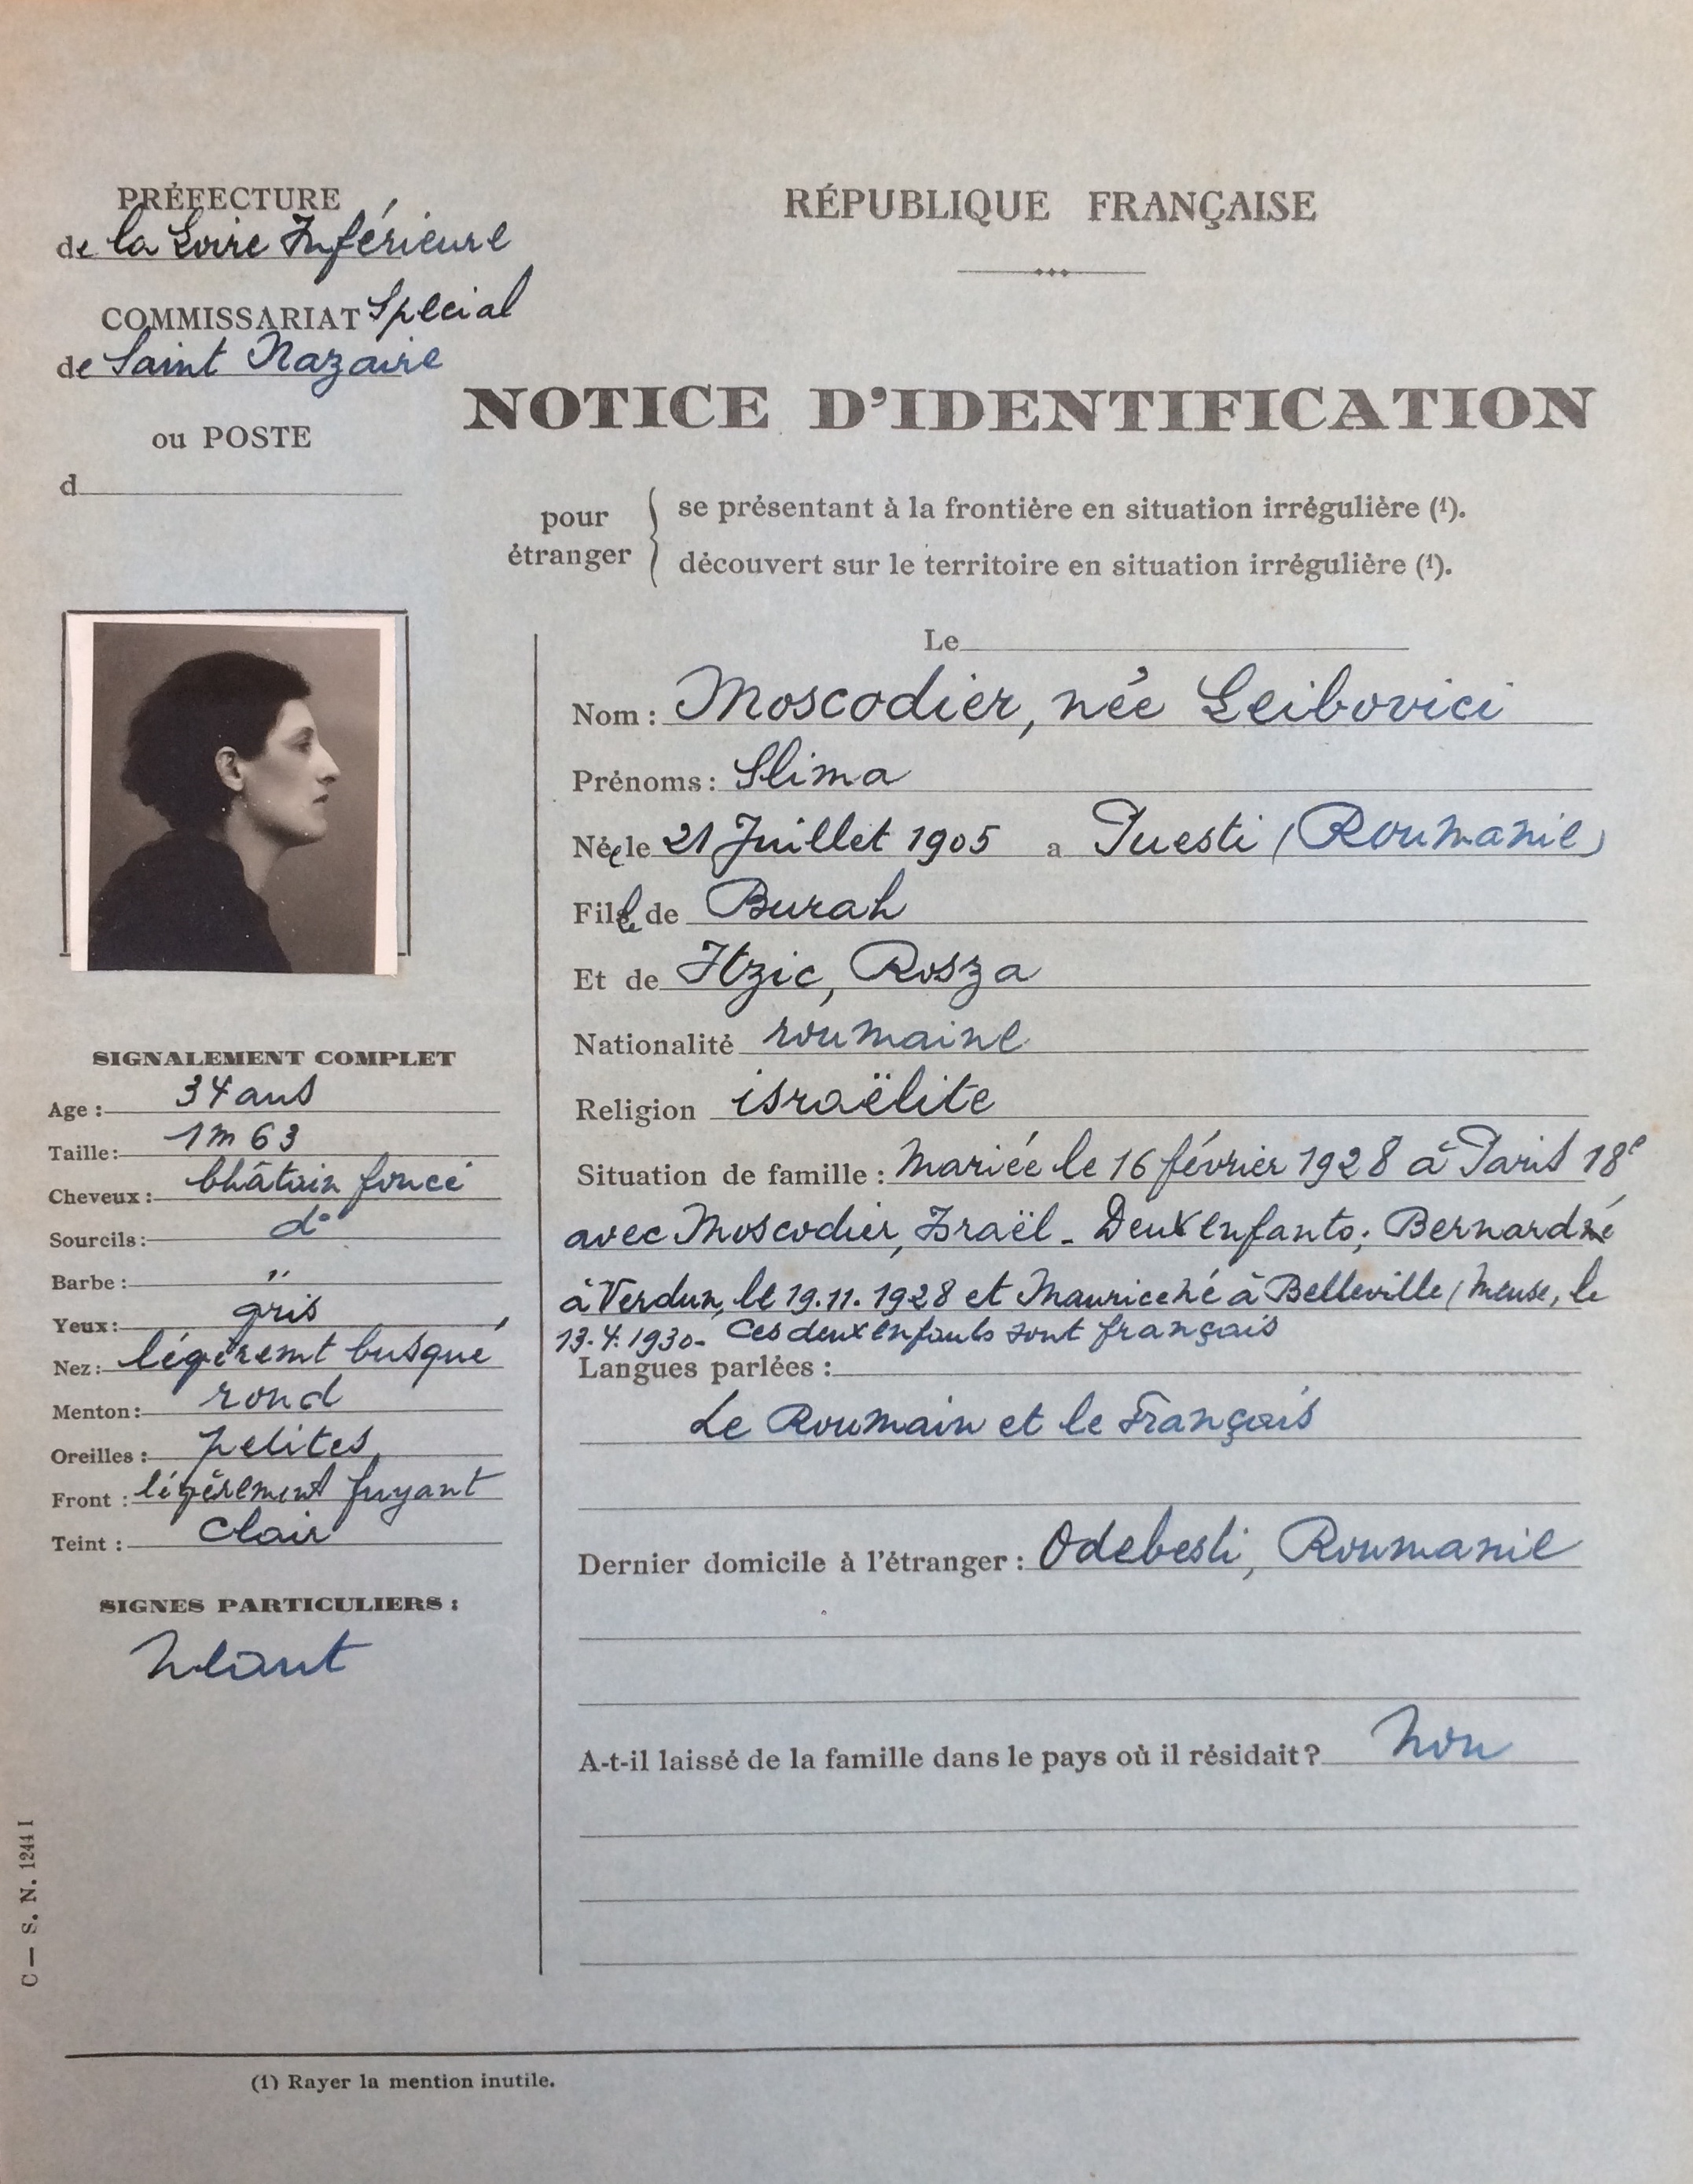 PRÉFECTURE
de la Loire Inférieure
COMMISSARIAT Spécial
de Saint Nazaire
ou POSTE
d
RÉPUBLIQUE FRANÇAISE
NOTICE D'IDENTIFICATION
pour étranger
se présentant à la frontière en situation irrégulière (1).
découvert sur le territoire en situation irrégulière (1).
Le
Nom : Moscodier, née Leibovici
Prénoms : Slima
Née le 21 Juillet 1905 a Puesti (Roumanie)
Fille de Burah
Et de Itzic, Rosza
Nationalité roumaine
Religion israëlite
Situation de famille : Mariée le 16 février 1928 à Paris 18e
avec Moscodier, Israël - Deux enfants; Bernard né
à Verdun, le 19.11.1928 et Maurice né à Belleville (Meuse, le
13.4.1930 - Ces deux enfants sont français
Langues parlées :
Le Roumain et le Français
Dernier domicile à l'étranger : Odebesti, Roumanie
A-t-il laissé de la famille dans le pays où il résidait ? Non
SIGNALEMENT COMPLET
Age : 34 ans
Taille : 1m 63
Cheveux : châtain foncé
Sourcils : d°
Barbe : "
Yeux : gris
Nez : légèremt busqué
Menton : rond
Oreilles : petites
Front : légèrement fuyant
Teint : clair
SIGNES PARTICULIERS :
Néant
C — S. N. 1244 I
(1) Rayer la mention inutile.